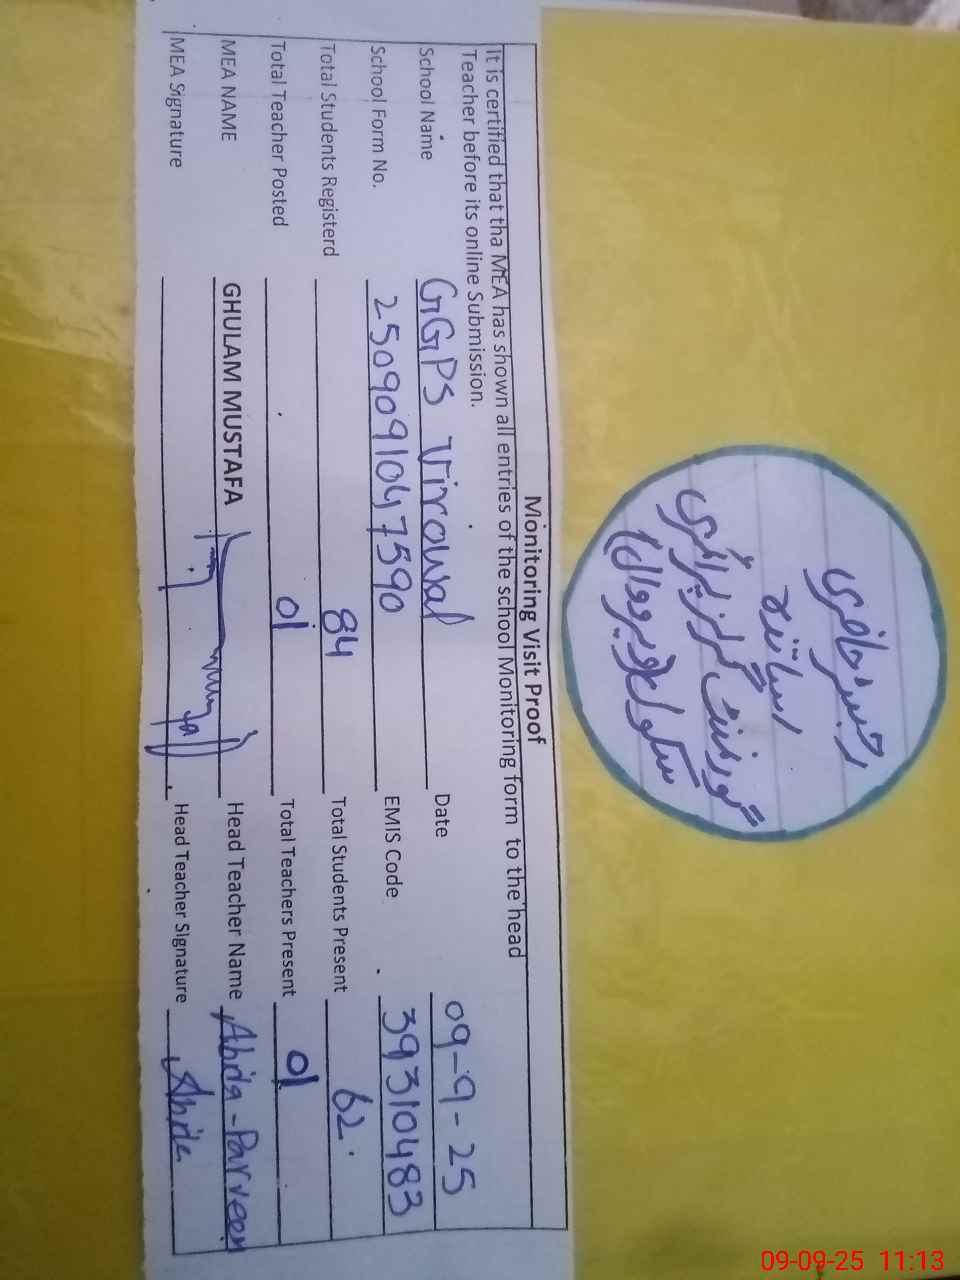 رجسٹر حاضری
اساتذہ
گورنمنٹ گرلز پرائمری
سکول (ویرووال)
Monitoring Visit Proof
It is certified that tha MEA has shown all entries of the school Monitoring form to the head
Teacher before its online Submission.
School Name GGPS Virowal Date 09-9-25
School Form No. 2509091047590 EMIS Code 39310483
Total Students Registerd 84 Total Students Present 62
Total Teacher Posted 01 Total Teachers Present 01
MEA NAME GHULAM MUSTAFA Head Teacher Name Abida-Parveen
MEA Signature Head Teacher Signature Abida
09-09-25 11:13